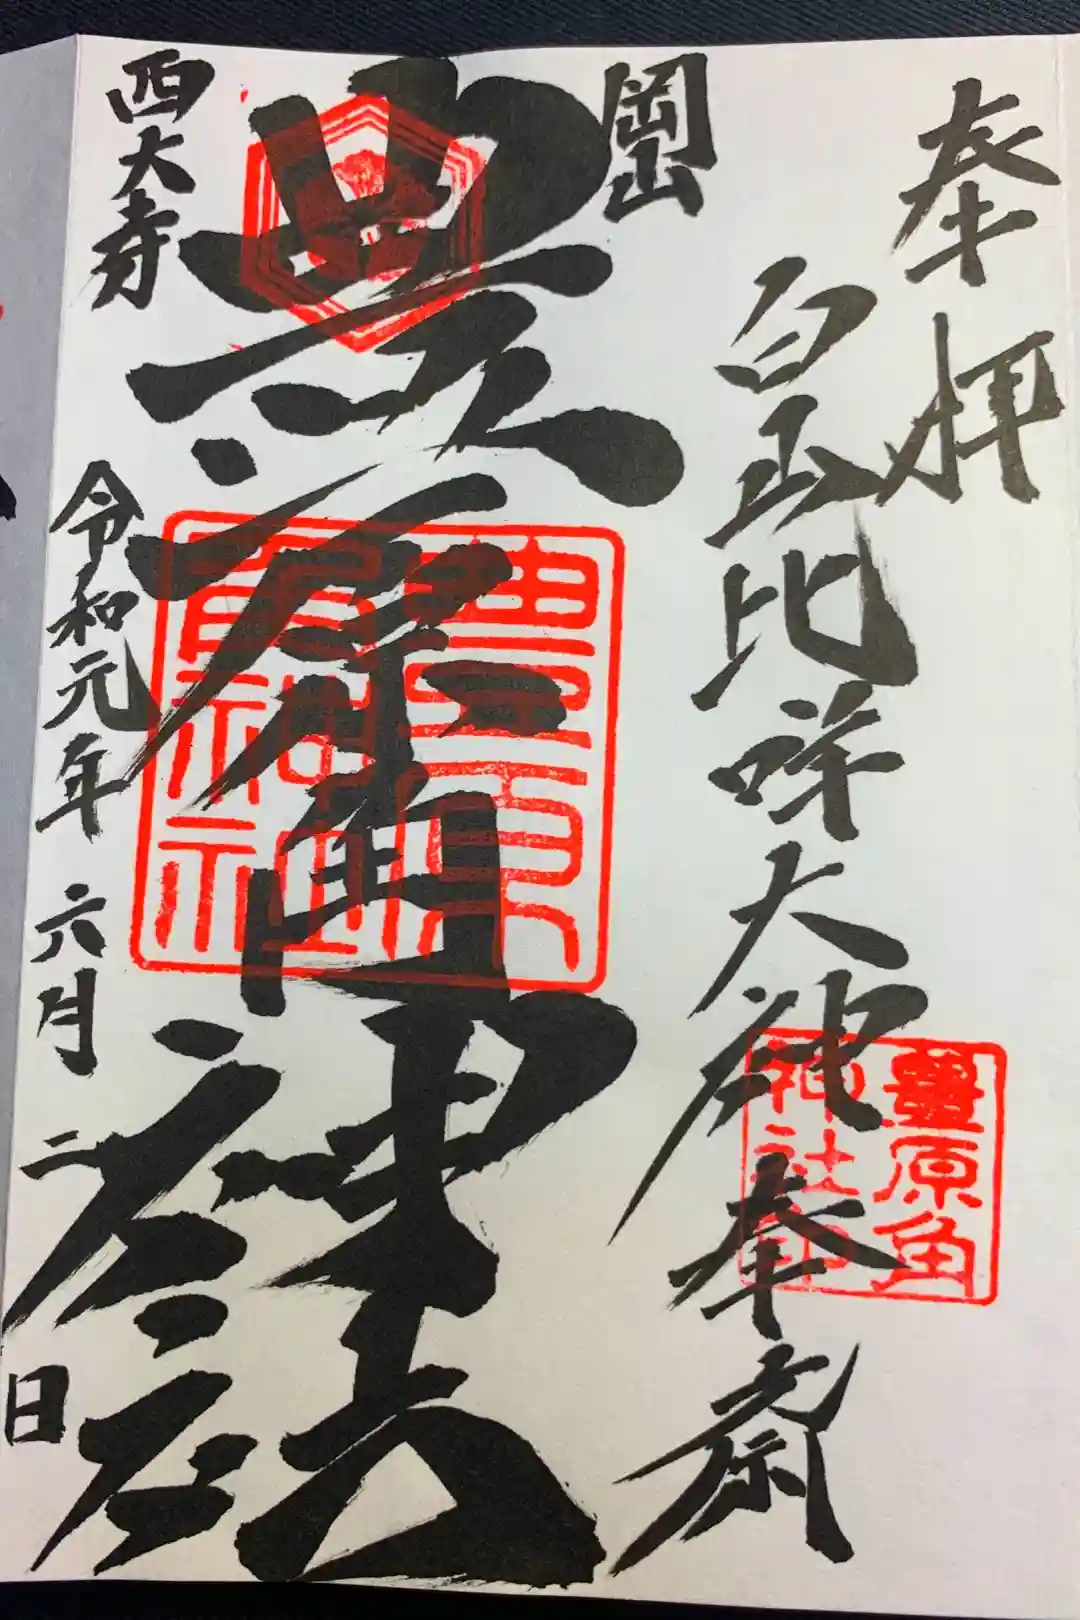 奉拝
白山比咩大神奉斎
岡山
豊原角神社
西大寺
令和元年六月二日
豊原角神社
豊原角
神社印